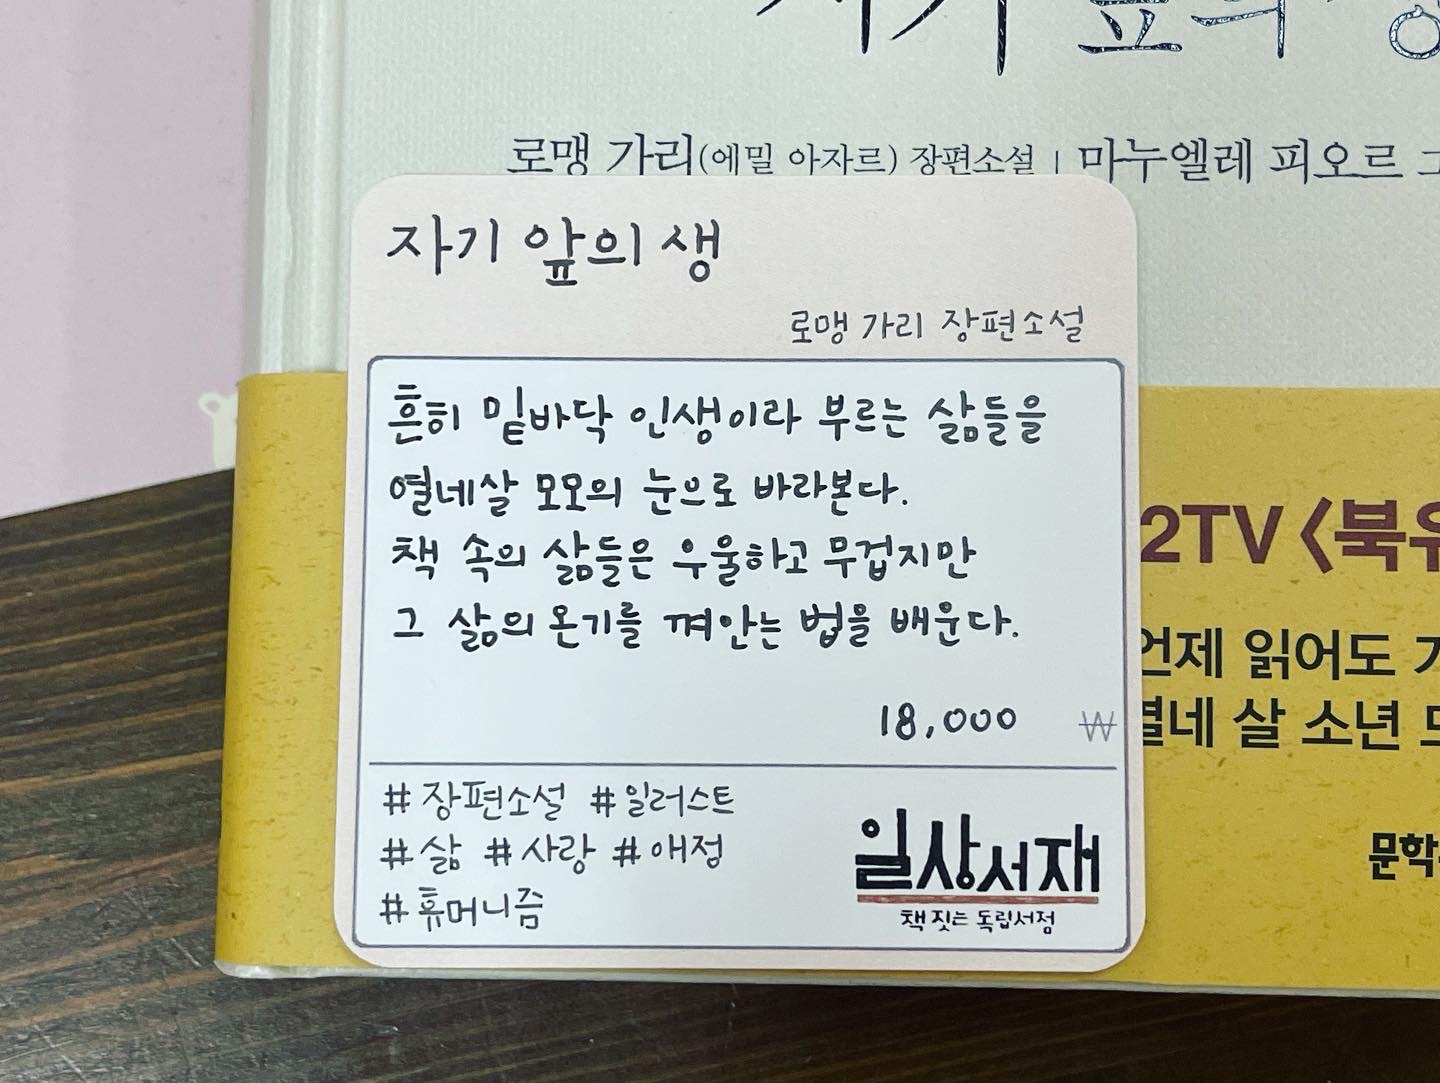 자기 앞의 생
로맹 가리(에밀 아자르) 장편소설 | 마누엘레 피오르
자기 앞의 생
로맹 가리 장편소설
흔히 밑바닥 인생이라 부르는 삶들을
열네살 모모의 눈으로 바라본다.
책 속의 삶들은 우울하고 무겁지만
그 삶의 온기를 껴안는 법을 배운다.
18,000 ₩
#장편소설 #일러스트
#삶 #사랑 #애정
#휴머니즘
일상서재
책 짓는 독립서점
2TV <북유
언제 읽어도
열네 살 소년
문학